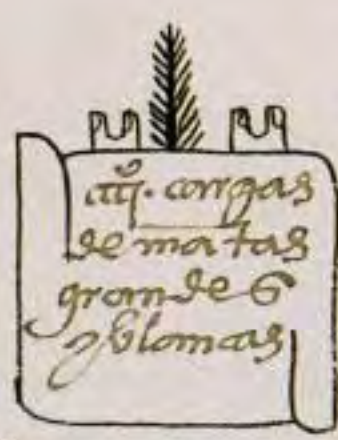 iiijº. cargas
de mãtas
grandes
y blancas